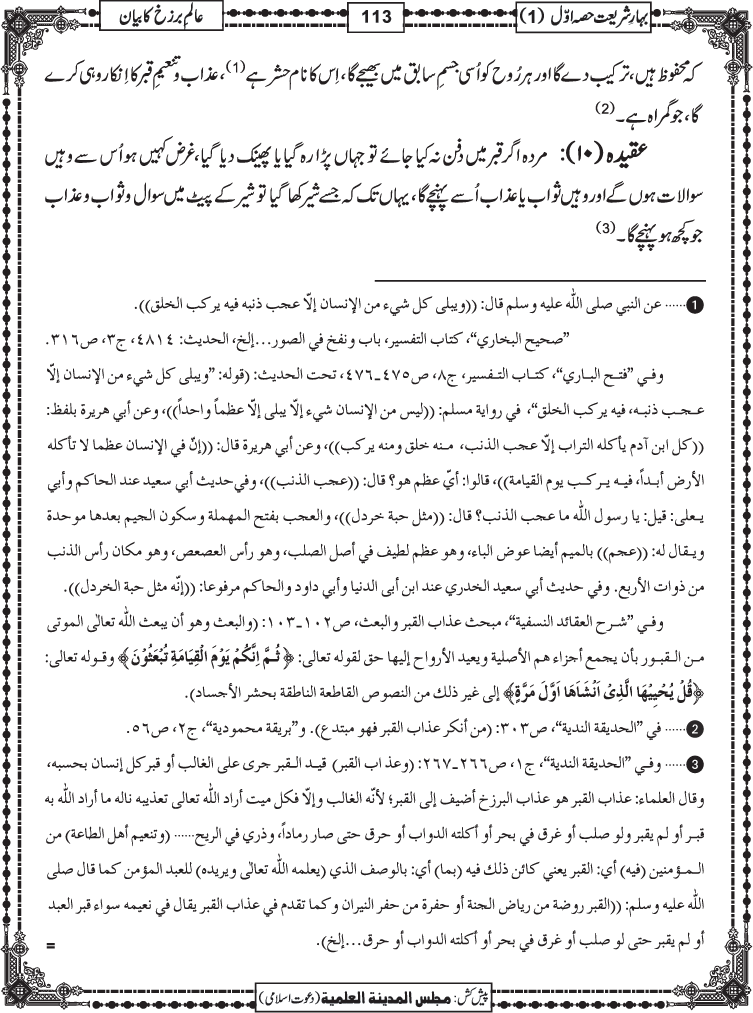 بہارِ شریعت حصہ اوّل (1)
113
عالمِ برزخ کا بیان
کہ محفوظ ہیں، ترکیب دے گا اور ہر رُوح کو اُسی جسمِ سابق میں بھیجے گا، اِس کا نام حشر ہے (1)، عذاب و تنعیمِ قبر کا اِنکار وہی کرے
گا، جو گمراہ ہے۔ (2)
عقیدہ (۱۰): مردہ اگر قبر میں دفن نہ کیا جائے تو جہاں پڑا رہ گیا یا پھینک دیا گیا، غرض کہیں ہو اُس سے وہیں
سوالات ہوں گے اور وہیں ثواب یا عذاب اُسے پہنچے گا، یہاں تک کہ جسے شیر کھا گیا تو شیر کے پیٹ میں سوال و ثواب و عذاب
جو کچھ ہو پہنچے گا۔ (3)
1 ...... عن النبي صلى الله عليه وسلم قال: ((ويبلى كل شيء من الإنسان إلّا عجب ذنبه فيه يركب الخلق)).
”صحيح البخاري“، كتاب التفسير، باب ونفخ في الصور...إلخ، الحديث: ٤٨١٤، ج٣، ص٣١٦.
وفي ”فتح الباري“، كتاب التفسير، ج٨، ص٤٧٥ـ٤٧٦، تحت الحديث: (قوله: ”ويبلى كل شيء من الإنسان إلّا
عجب ذنبه، فيه يركب الخلق“، في رواية مسلم: ((ليس من الإنسان شيء إلّا يبلى إلّا عظماً واحداً))، وعن أبي هريرة بلفظ:
((كل ابن آدم يأكله التراب إلّا عجب الذنب، منه خلق ومنه يركب))، وعن أبي هريرة قال: ((إنّ في الإنسان عظما لا تأكله
الأرض أبداً، فيه يركب يوم القيامة))، قالوا: أيّ عظم هو؟ قال: ((عجب الذنب))، وفي حديث أبي سعيد عند الحاكم وأبي
يعلى: قيل: يا رسول الله ما عجب الذنب؟ قال: ((مثل حبة خردل))، والعجب بفتح المهملة وسكون الجيم بعدها موحدة
ويقال له: ((عجم)) بالميم أيضا عوض الباء، وهو عظم لطيف في أصل الصلب، وهو رأس العصعص، وهو مكان رأس الذنب
من ذوات الأربع. وفي حديث أبي سعيد الخدري عند ابن أبي الدنيا وأبي داود والحاكم مرفوعا: ((إنّه مثل حبة الخردل)).
وفي ”شرح العقائد النسفية“، مبحث عذاب القبر والبعث، ص١٠٢ـ١٠٣: (والبعث وهو أن يبعث الله تعالى الموتى
من القبور بأن يجمع أجزاء هم الأصلية ويعيد الأرواح إليها حق لقوله تعالى: ﴿ثُمَّ اِنَّكُمْ يَوْمَ الْقِيَامَةِ تُبْعَثُوْنَ﴾ وقوله تعالى:
﴿قُلْ يُحْيِيْهَا الَّذِیْ اَنْشَاَهَا اَوَّلَ مَرَّةٍ﴾ إلى غير ذلك من النصوص القاطعة الناطقة بحشر الأجساد).
2 ...... في ”الحديقة الندية“، ص٣٠٣: (من أنكر عذاب القبر فهو مبتدع). و”بريقة محمودية“، ج٢، ص٥٦.
3 ...... وفي ”الحديقة الندية“، ج١، ص٢٦٦ـ٢٦٧: (وعذاب القبر) قيد القبر جرى على الغالب أو قبر كل إنسان بحسبه،
وقال العلماء: عذاب القبر هو عذاب البرزخ أضيف إلى القبر؛ لأنه الغالب وإلّا فكل ميت أراد الله تعالى تعذيبه ناله ما أراد الله به
قبر أو لم يقبر ولو صلب أو غرق في بحر أو أكلته الدواب أو حرق حتى صار رماداً، وذري في الريح...... (وتنعيم أهل الطاعة) من
المؤمنين (فيه) أي: القبر يعني كائن ذلك فيه (بما) أي: بالوصف الذي (يعلمه الله تعالى ويريده) للعبد المؤمن كما قال صلى
الله عليه وسلم: ((القبر روضة من رياض الجنة أو حفرة من حفر النيران وكما تقدم في عذاب القبر يقال في نعيمه سواء قبر العبد
أو لم يقبر حتى لو صلب أو غرق في بحر أو أكلته الدواب أو حرق...إلخ).
=
پیش کش: مجلس المدینة العلمیة (دعوت اسلامی)